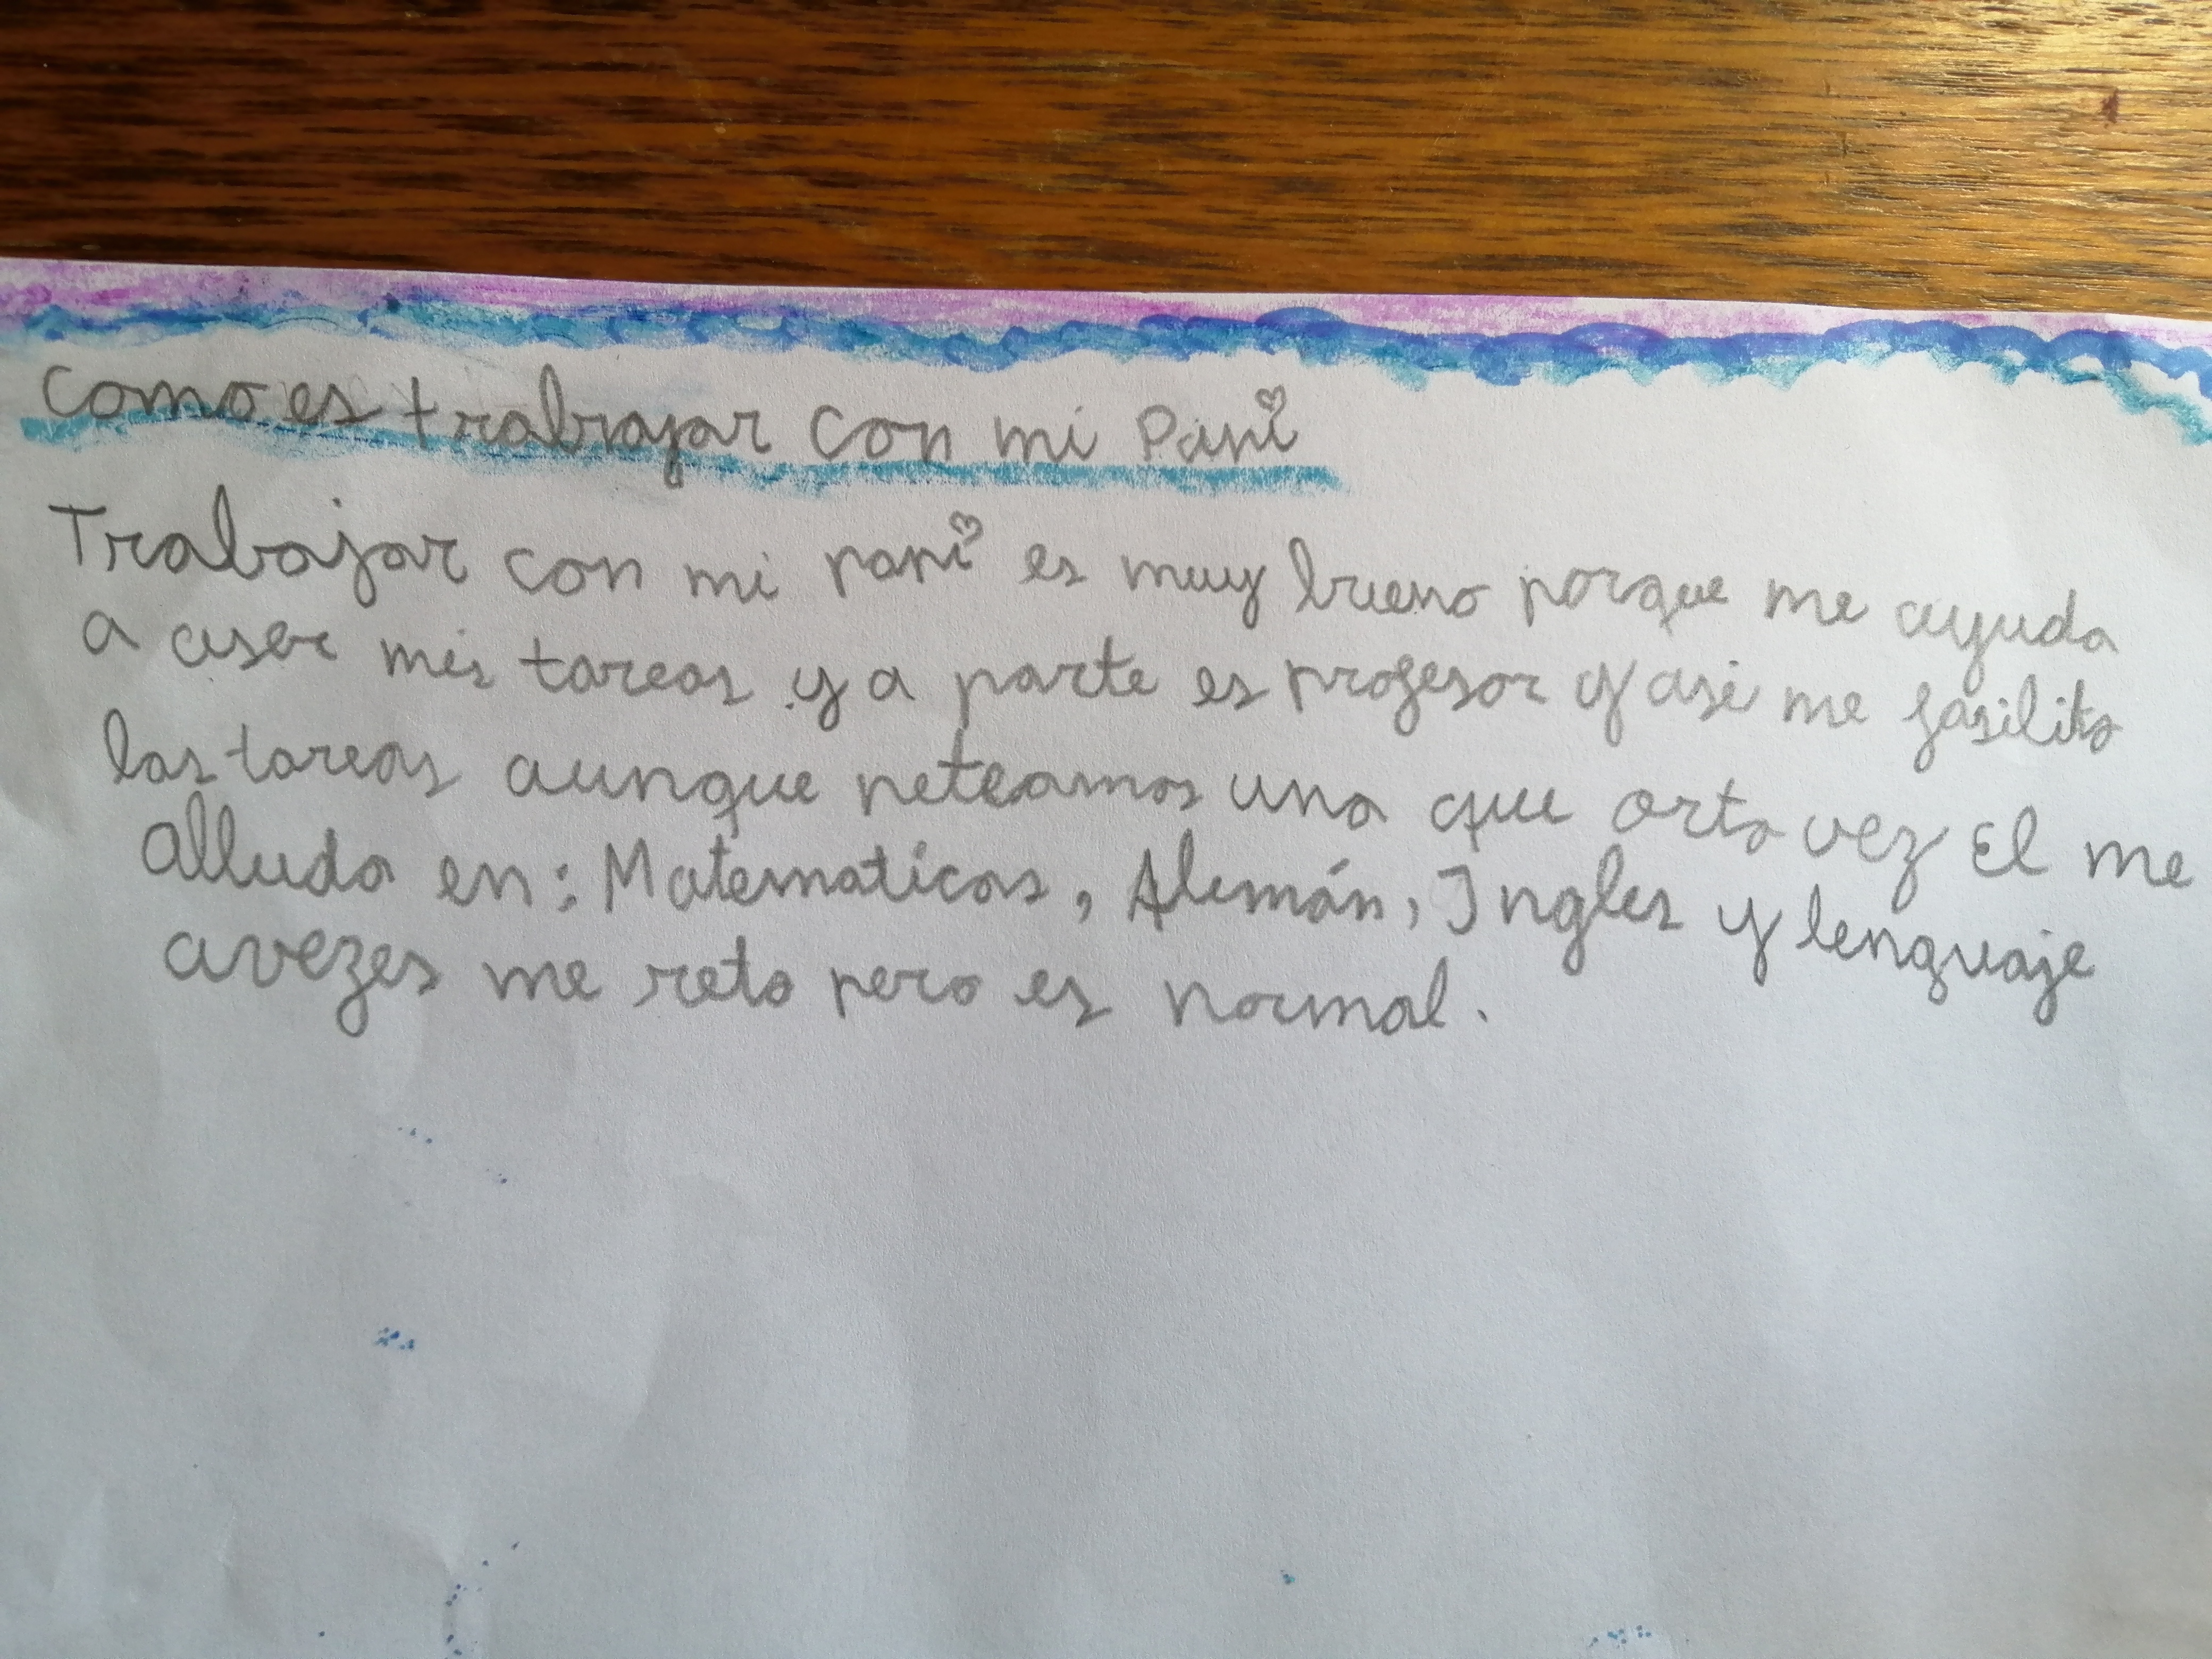 Como es trabajar con mi Papi
Trabajar con mi papi es muy bueno porque me ayuda
a aser mis tareas y a parte es profesor y asi me fasilita
las tareas aunque peteamos una que orta vez El me
Alluda en: Matematicas, Alemán, Ingles y lenguaje
avezes me reta pero es normal.